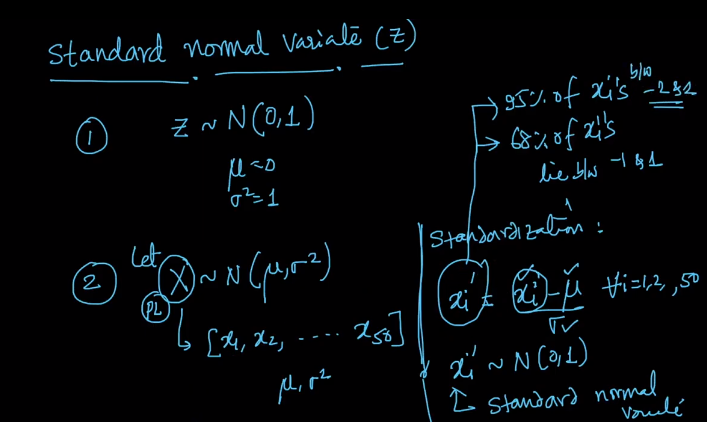 Standard normal variate (Z)
① Z ~ N(0,1)
μ=0
σ²=1
② Let X ~ N(μ,σ²)
PL
[x₁, x₂, ..... x₅₀]
μ, σ²
95% of xᵢ''s b/w -2 & 2
68% of xᵢ''s
lie b/w -1 & 1
Standardization :
xᵢ' = (xᵢ-μ)/σ ∀i=1,2, ,50
xᵢ' ~ N(0,1)
Standard normal
variate